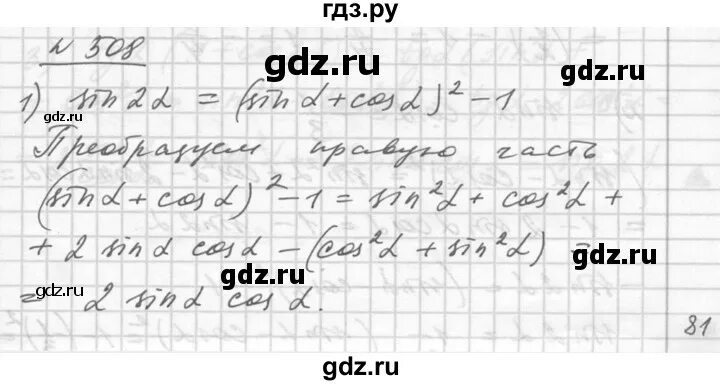 гдз.ру
N 508
gdz.ru
1) sin 2α = (sin α + cos α)² − 1
gdz.ru gdz.ru
Преобразуем правую часть
(sin α + cos α)² − 1 = sin²α + cos²α +
+ 2 sin α cos α − (cos²α + sin²α) =
gdz.ru gdz.ru
= 2 sin α cos α.
81
gdz.ru